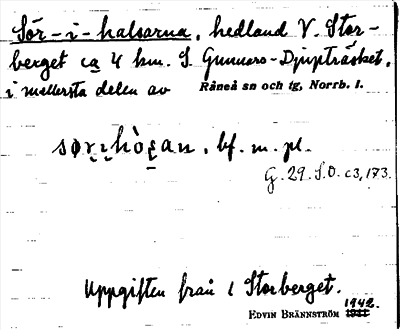 Sör-i-halsarna, hedland V. Stor-
berget ca 4 km. S. Gunnars-Djupträsket,
i mellersta delen av Råneå sn och tg, Norrb. l.
bf. m. pl.
G. 29. S.O. c3, 173.
Uppgiften från i Storberget.
EDVIN BRÄNNSTRÖM 1942.